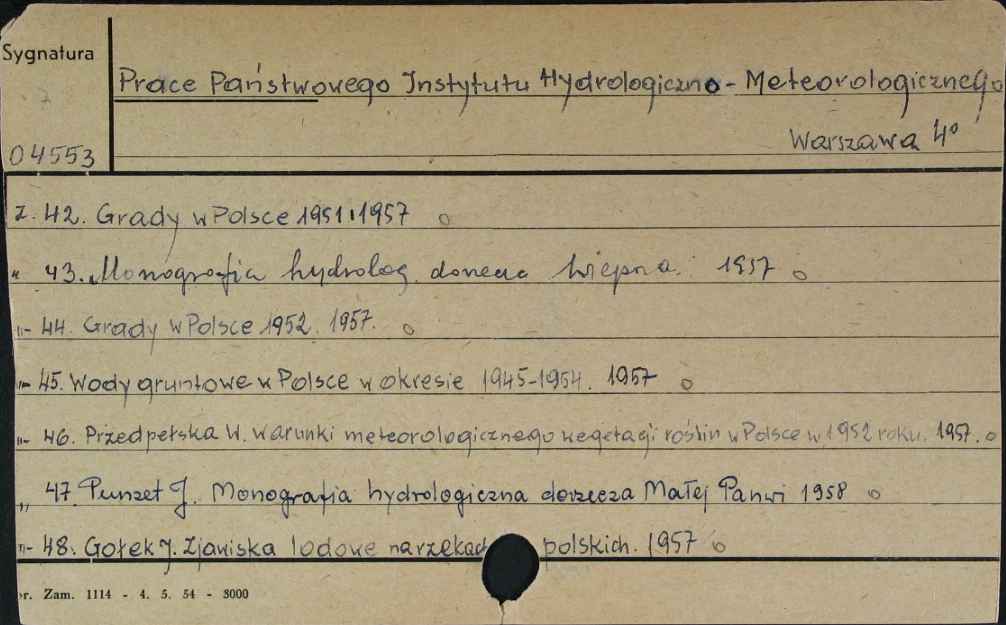 Sygnatura
Prace Państwowego Instytutu Hydrologiczno - Meteorologicznego
Warszawa 4°
04553
z. 42. Grady w Polsce 1951. 1957 o
" 43. Monografia hydrolog. dorzecza Wieprza. 1957 o
"- 44. Grady w Polsce 1952. 1957. o
"- 45. Wody gruntowe w Polsce w okresie 1945-1954. 1957 o
"- 46. Przedpełska W. warunki meteorologicznego wegetacji roślin w Polsce w 1952 roku. 1957. o
" 47 Punzet J. Monografia hydrologiczna dorzecza Małej Panwi 1958 o
"- 48. Gołek J. Zjawiska lodowe na rzekach polskich. 1957 o
r. Zam. 1114 - 4. 5. 54 - 3000